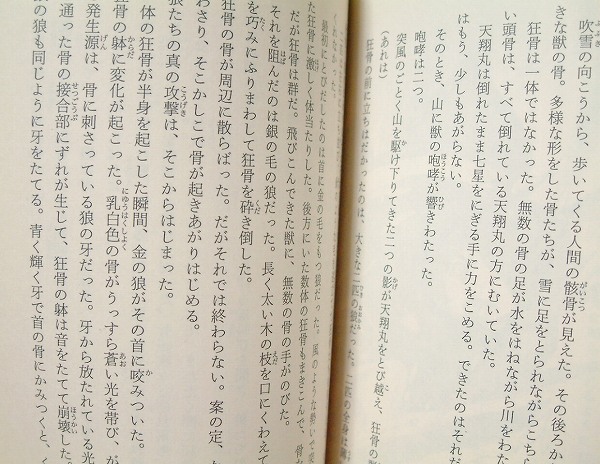 吹雪の向こうから、歩いてくる人間の骸骨が見えた。その後ろか
きな獣の骨。多様な形をした骨たちが、雪に足をとられながらこち
狂骨は一体ではなかった。無数の骨の足が水をはねながら川をわた
い頭骨は、すべて倒れている天翔丸の方にむいていた。
天翔丸は倒れたまま七星をにぎる手に力をこめる。できたのはそれだ
はもう、少しもあがらない。
そのとき、山に獣の咆哮が響きわたった。
咆哮は二つ。
突風のごとく山を駆け下りてきた二つの影が天翔丸をとび越え、狂骨の
(あれは)
狂骨の前に立ちはだかったのは、大きな二匹の狼だった。二匹の全身は
最初にとびだしたのは首に金の毛をもつ狼だった。風のような勢いで
た狂骨に激しく体当たりした。後方にいた数体の狂骨もまきこんで、骨が
だが狂骨は群だ。飛びこんできた獣に、無数の骨の手がのびた。
それを阻んだのは銀の毛の狼だった。長く太い木の枝を口にくわえて
を巧みにふりまわして狂骨を砕き倒した。
狂骨の骨が周辺に散らばった。だがそれでは終わらない。案の定、
わさり、そこかしこで骨が起きあがりはじめる。
狼たちの真の攻撃は、そこからはじまった。
体の狂骨が半身を起こした瞬間、金の狼がその首に咬みついた。
骨の躰に変化が起こった。乳白色の骨がうっすら蒼い光を帯び、が
発生源は、骨に刺さっている狼の牙だった。牙から放たれている光
通った骨の接合部にずれが生じて、狂骨の躰は音をたてて崩壊した。
の狼も同じように牙をたてる。青く輝く牙で首の骨にかみつくと、く